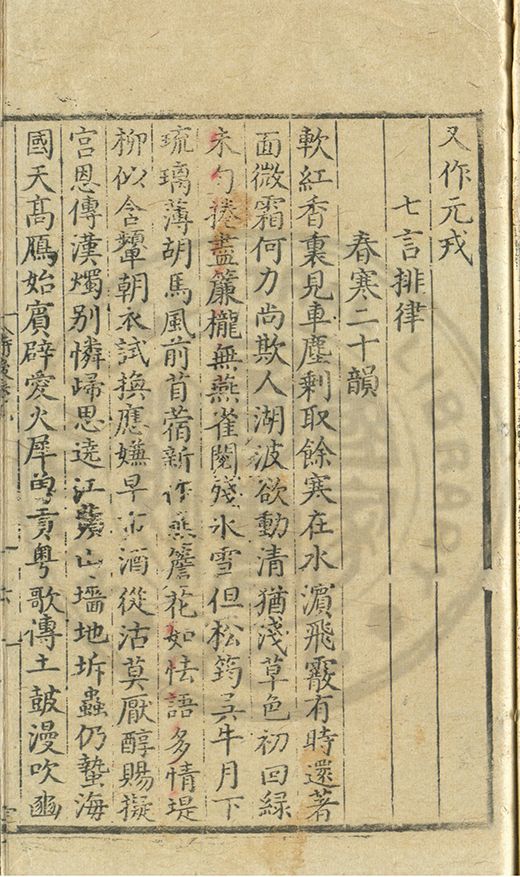 又作元戎
七言排律
春寒二十韻
軟紅香裏見車塵剩取餘寒在水濵飛霰有時還著
面微霜何力尚欺人湖波欲動清猶淺草色初回緑
未勻捲盡簾櫳無燕雀閱殘氷雪但松筠吴牛月下
琉璃薄胡馬風前苜蓿新作簷花如怯語多情堤
柳似含顰朝衣試換應嫌早市酒從沽莫厭醇賜擬
宫恩傳漢燭别憐歸思遶江山墻地坼蟲仍蟄海
國天髙鴈始賓辟愛火犀貢粤歌傳土鼓漫吹豳